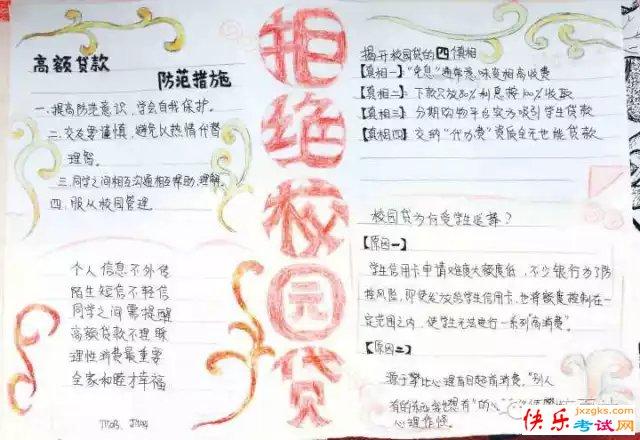 高额贷款
防范措施
一.提高防范意识,学会自我保护。
二.交友要谨慎,避免以热情代替
理智。
三.同学之间相互沟通相互帮助,理解。
四.服从校园管理
个人信息不外传
陌生短信不轻信
同学之间需提醒
高额贷款不理睬
理性消费最重要
全家和睦才幸福
拒绝校园贷
揭开校园贷的四个真相
【真相一】"免息"通常意味变相高收费
【真相二】下款只放80%利息按100%收取
【真相三】分期购物平台实为吸引学生贷款
【真相四】交纳"代办费"资质全无也能贷款
校园贷为何受学生追捧?
【原因一】
学生信用卡申请难度大额度低,不少银行为了防
控风险,即使发放给学生信用卡,也将额度控制在一
定范围之内,使学生无法进行一系列"高消费"。
【原因二】
源于攀比心理盲目超前消费,"别人
有的东西我也想有"的心
心理作怪。
快乐考试网
jxzgks.com